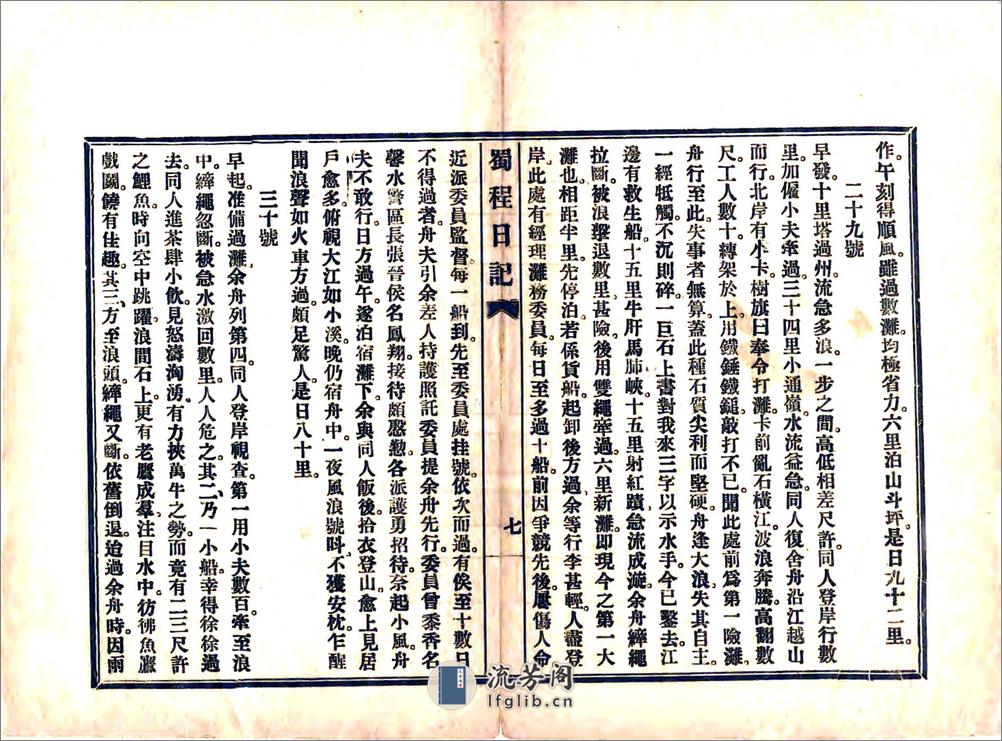 作。午刻得順風。雖過數灘。均極省力。六里泊山斗坪。是日九十二里。
二十九號
早發十里塔過州。流急多浪。一步之間。高低相差尺許。同人登岸行數
里。加僱小夫牽過。三十四里小通嶺。水流益急。同人復舍舟沿江越山
而行。北岸有小卡。樹旗曰奉令打灘。卡前亂石橫江。波浪奔騰。高翻數
尺。工人數十。縳架於上。用鐵錘鐵鎚。敲打不已。聞此處前爲第一險灘。
舟行至此。失事者無算。蓋此種石質。尖利而堅硬。舟逢大浪。失其自主。
一經牴觸。不沉則碎。一巨石上書對我來三字。以示水手。今已鑿去。江
邊有救生船。十五里牛肝馬肺峽。十五里射紅蹟。急流成漩。余舟縴繩
拉斷。被浪擊退數里。甚險。後用雙繩牽過。六里新灘。卽現今之第一大
灘也。相距半里。先停泊。若係貨船。起卸後方過。余等行李甚輕。人盡登
岸。此處有經理灘務委員。每日至多過十船。前因爭競先後。屢傷人命。
蜀程日記
七
近派委員監督。每一船到。先至委員處挂號。依次而過。有俟至十數日
不得過者。舟夫引余差人持護照託委員提余舟先行。委員曾黍香名
馨。水警區長張晉侯名鳳翔。接待頗慇懃。各派護勇招待。奈起小風。舟
夫不敢行。日方過午。遂泊宿灘下。余與同人飯後拾衣登山。愈上見居
戶愈多。俯視大江如小溪。晚仍宿舟中。一夜風浪號呌。不獲安枕。乍醒
聞浪聲如火車方過。頗足驚人。是日八十里。
三十號
早起准備過灘。余舟列第四。同人登岸視查。第一用小夫數百。牽至浪
中。縴繩忽斷。被急水激回數里。人人危之。其二乃一小船。幸得徐徐過
去。同人進茶肆小飲。見怒濤洶湧。有力挾萬牛之勢。而竟有二三尺許
之鯉魚。時向空中跳躍。浪間石上。更有老鷹成羣。注目水中。彷彿魚鷹
戲鬭。饒有佳趣。其三方至浪頭。縴繩又斷。依舊倒退。迨過余舟時。因兩
流芳阁
lfglib.cn